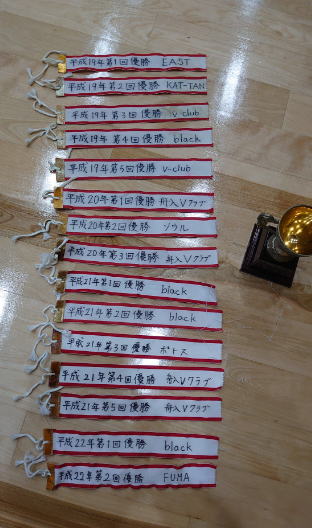 平成19年第1回優勝 EAST
平成19年第2回優勝 KAT-TAN
平成19年第3回優勝 v-club
平成19年第4回優勝 black
平成19年第5回優勝 v-club
平成20年第1回優勝 舟入Vクラブ
平成20年第2回優勝 ソウル
平成20年第3回優勝 舟入Vクラブ
平成21年第1回優勝 black
平成21年第2回優勝 black
平成21年第3回優勝 ポトス
平成21年第4回優勝 舟入Vクラブ
平成21年第5回優勝 舟入Vクラブ
平成22年第1回優勝 black
平成22年第2回優勝 FUMA